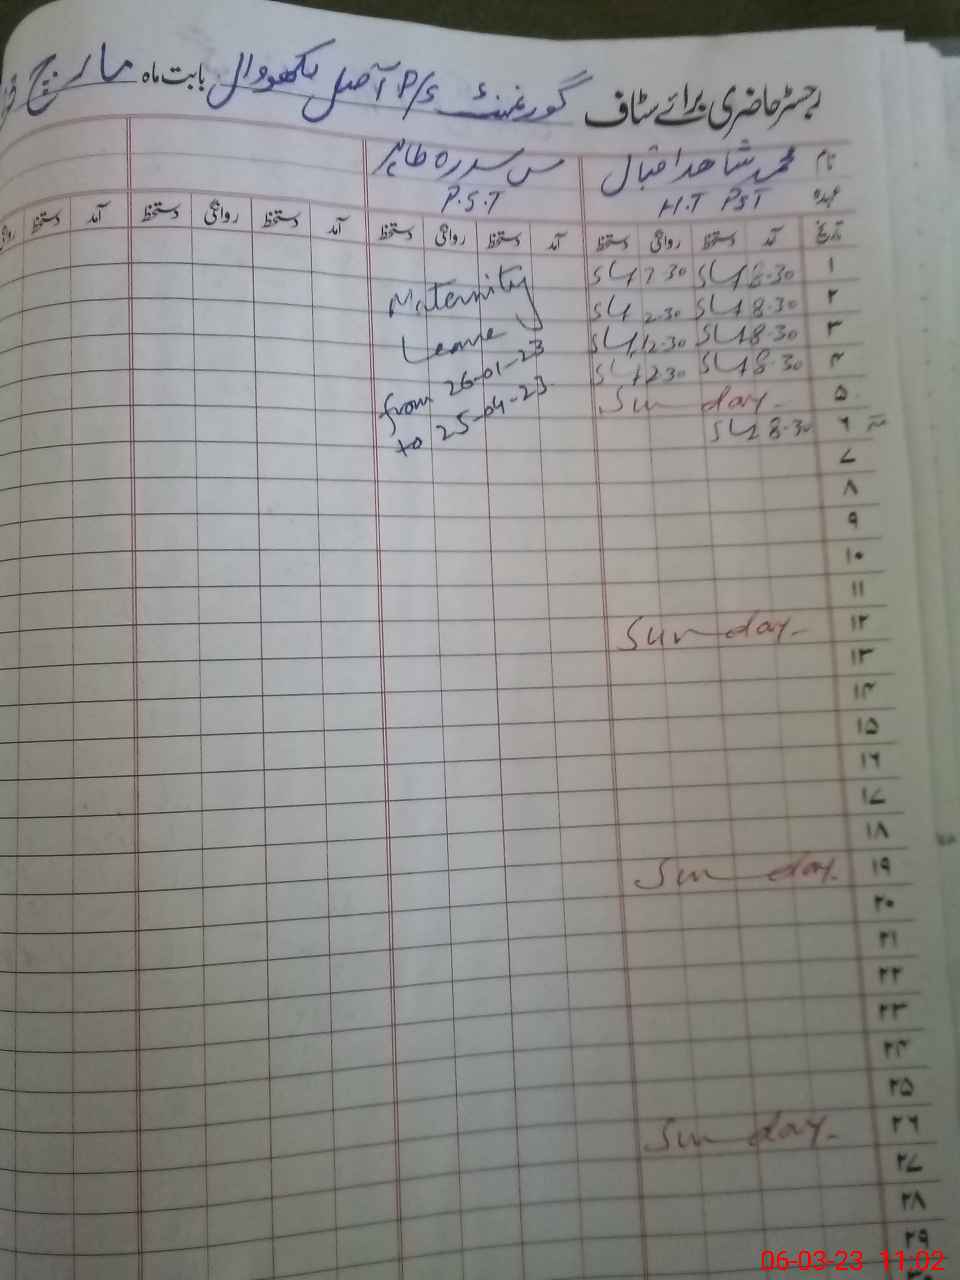 رجسٹر حاضری برائے سٹاف گورنمنٹ P/S آصل لکھووال بابت ماہ مارچ
نام محمد شاھد اقبال مس سدرہ طاہر
عہدہ H.T PST P.S.T
تاریخ آمد دستخط روانگی دستخط آمد دستخط روانگی دستخط آمد دستخط روانگی دستخط آمد دستخط
۱ 8.30 2.30
۲ 8.30 2.30
۳ 8.30 12.30
۴ 8.30 1230
۵ Sunday.
۶ 8.30
Maternity
Leave
from 26-01-23
to 25-04-23
۷
۸
۹
۱۰
۱۱
۱۲ Sunday.
۱۳
۱۴
۱۵
۱۶
۱۷
۱۸
۱۹ Sunday.
۲۰
۲۱
۲۲
۲۳
۲۴
۲۵
۲۶ Sunday.
۲۷
۲۸
۲۹
06-03-23 11:02